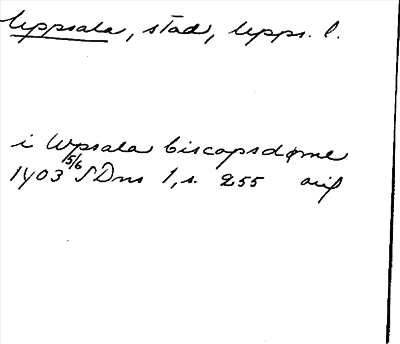 Uppsala, stad, Upps. l.
i Wpsala biscopsdøme
1403 5/6 SDns 1, s. 255 or